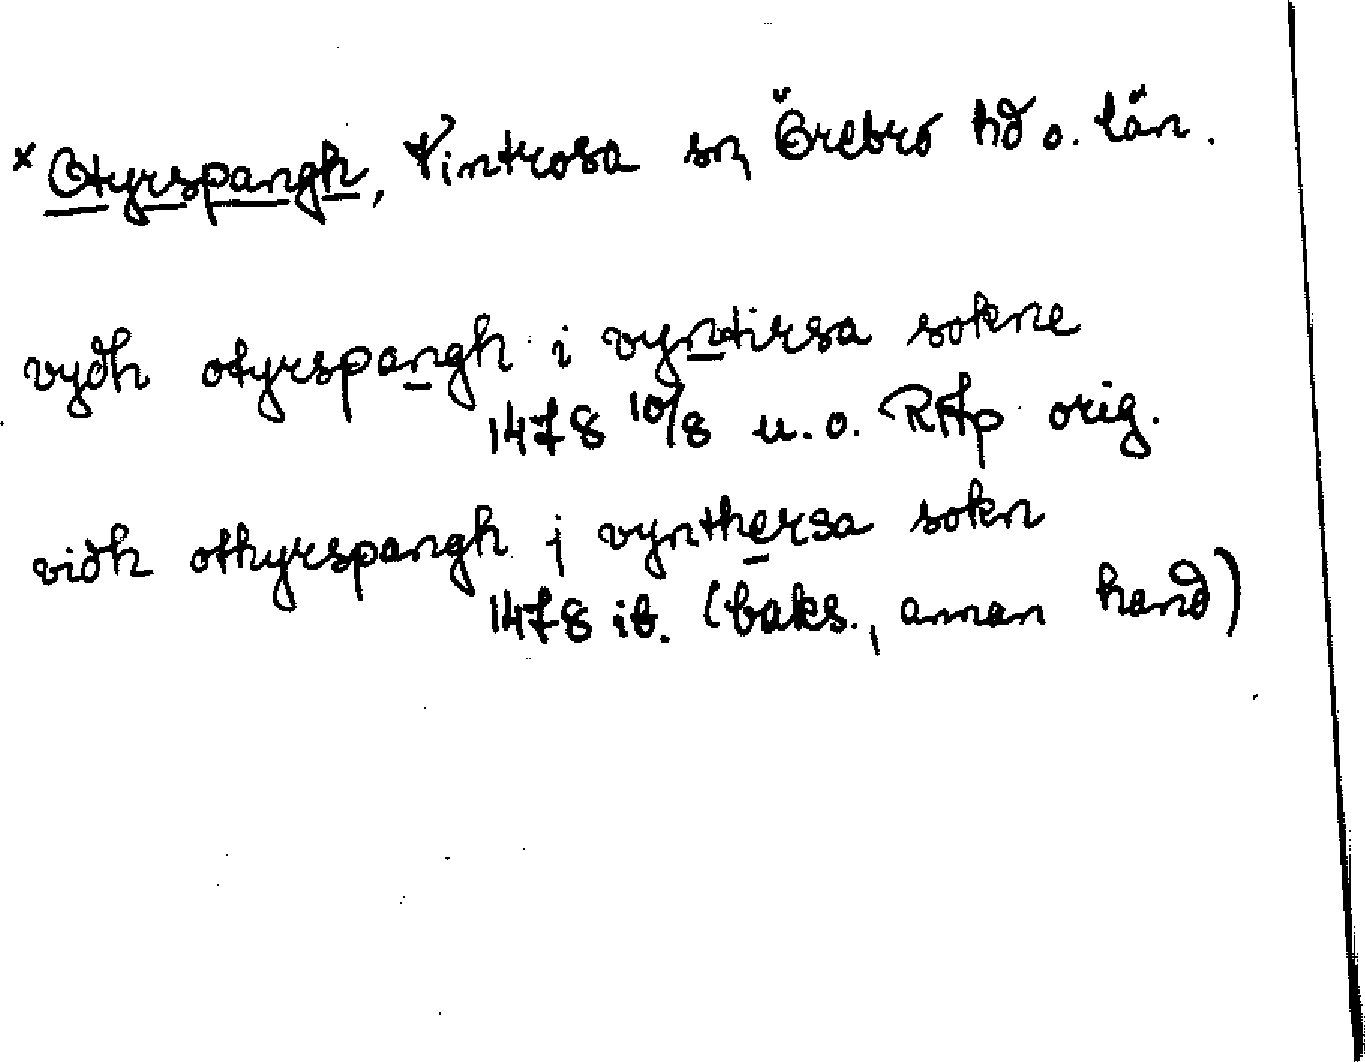 * Otyrspangh, Vintrosa sn, Örebro hd o. län.
vydh otyrspangh i vyntirsa sokne
1478 10/8 u. o. RAp orig.
vidh othyrspangh j vynthersa sokn
1478 ib. (baks., annan hand)